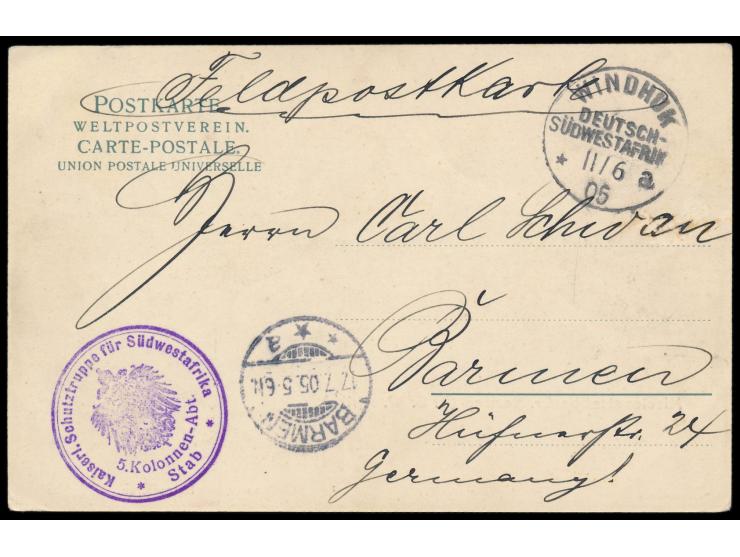 Feldpostkarte
POSTKARTE.
WELTPOSTVEREIN.
CARTE-POSTALE.
UNION POSTALE UNIVERSELLE
WINDHUK
DEUTSCH-
SÜDWESTAFRIKA
* 11/6 a
05
Herrn Carl Schwan
Barmen
Hüfnerstr. 24
Germany!
Kaiserl. Schutztruppe für Südwestafrika
5. Kolonnen-Abt.
Stab
* *
a
17.7.05. 5-6N.
BARMEN